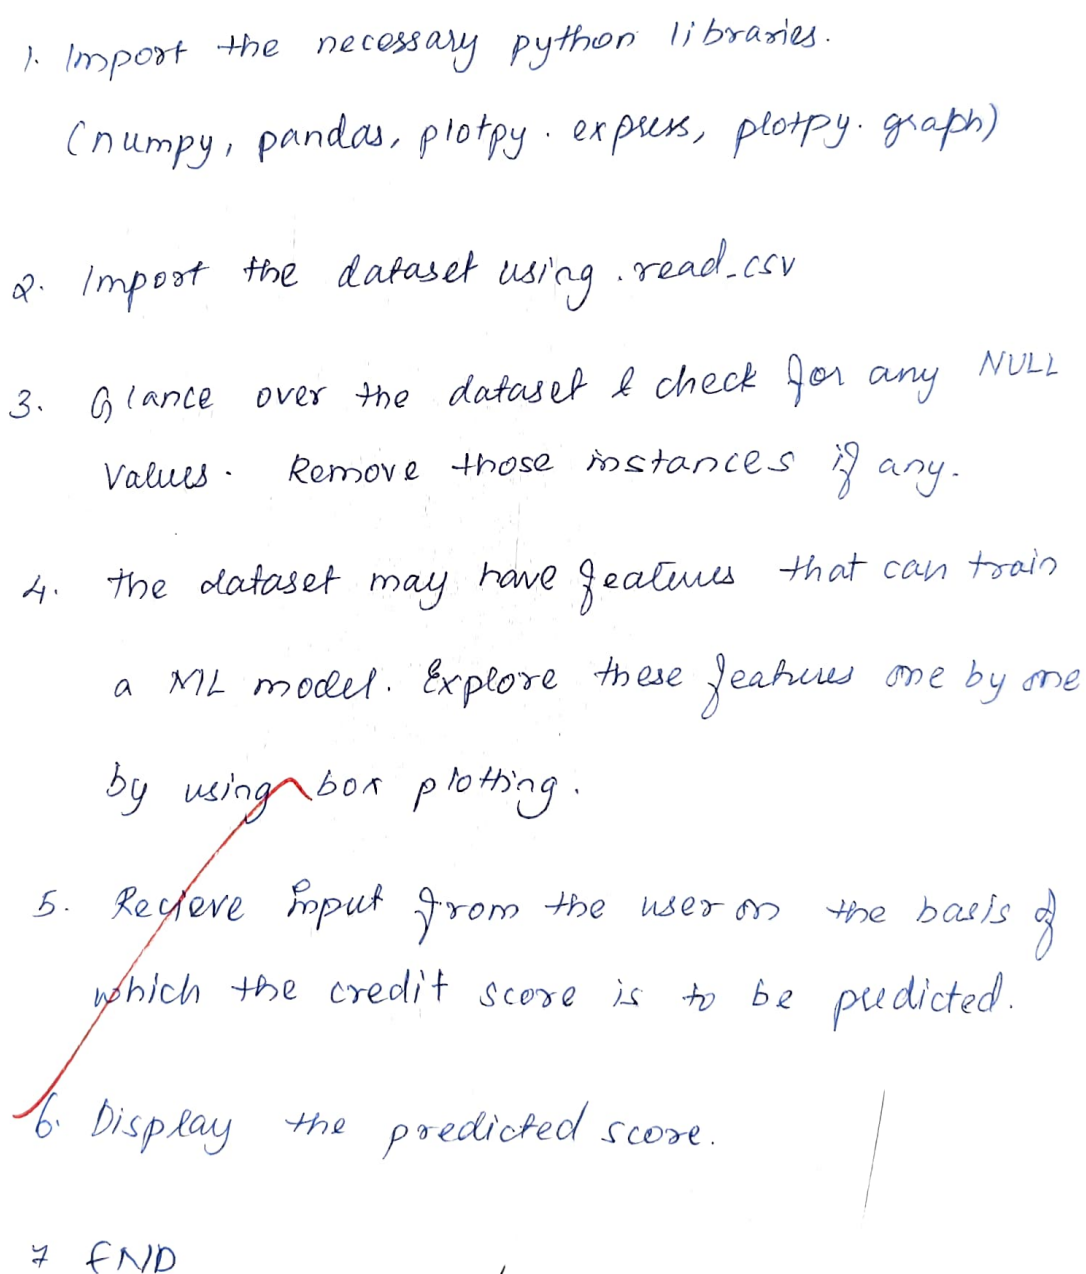 1. Import the necessary python libraries.
(numpy, pandas, plotpy. express, plotpy. graph)
2. Import the dataset using .read_csv
3. Glance over the dataset & check for any NULL
values. Remove those instances if any.
4. the dataset may have features that can train
a ML model. Explore these features one by one
by using box plotting.
5. Recieve input from the user on the basis of
which the credit score is to be predicted.
6. Display the predicted score.
7 END